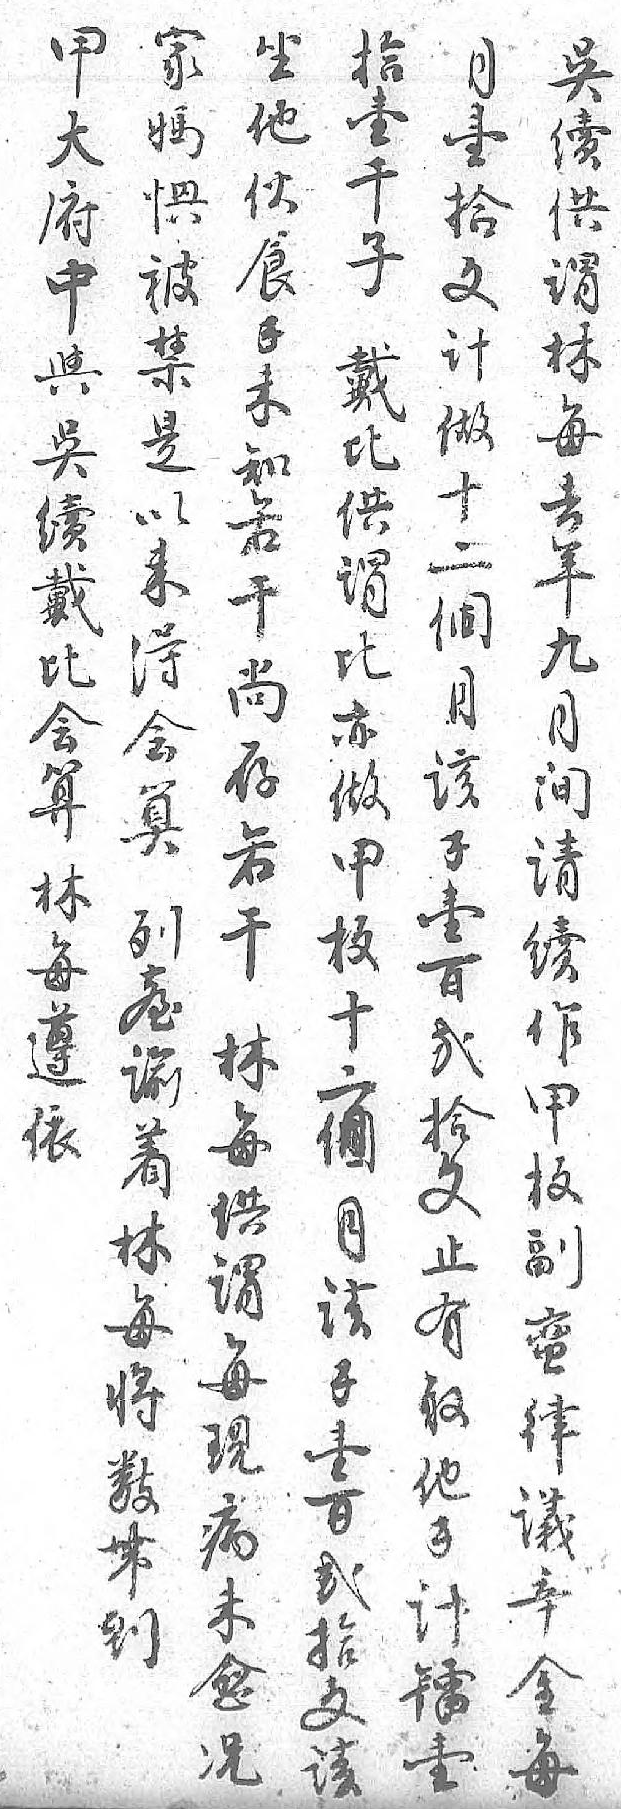 吳續供謂林每去年九月间请續作甲板副蛮律議辛金每
月壹拾文计做十二個月该子壹百弍拾文止有取他子计镭壹
拾壹千子　戴比供謂比亦做甲板十二個月该子壹百弍拾文该
坐他伙食子未知若干尚存若干　林每供謂每現病未愈况
家媽惧被禁是以未得会算　列台谕着林每将数带到
甲大府中與吳續戴比会算林每遵依